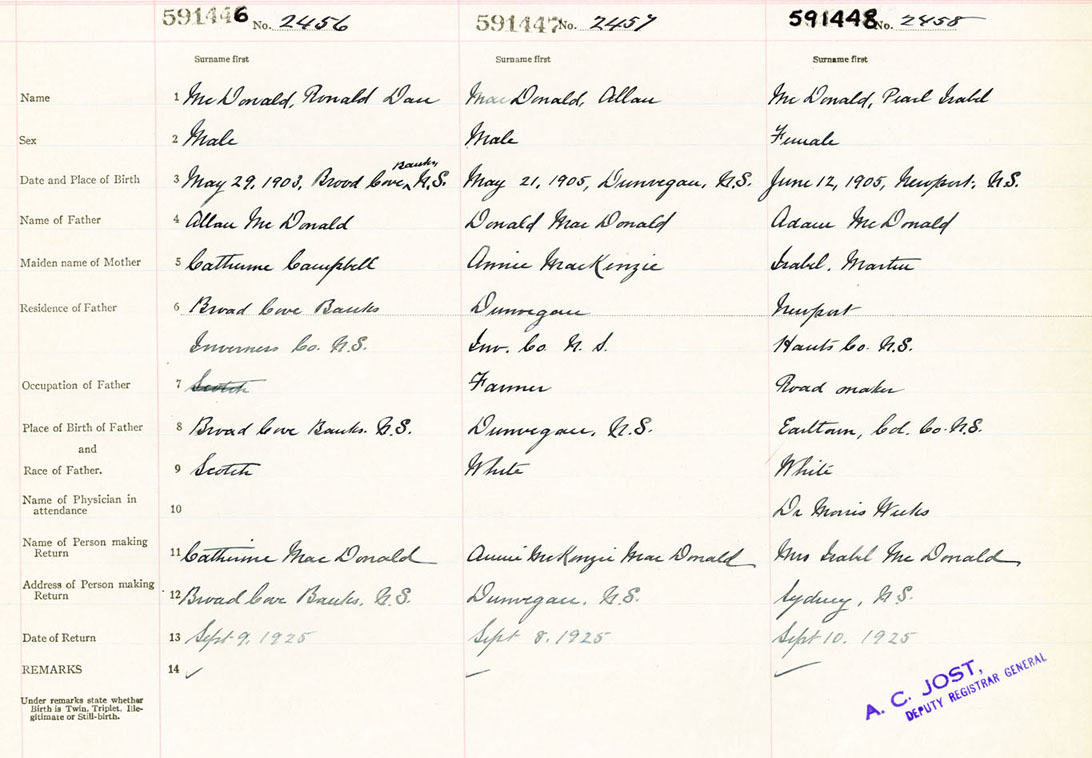 591446 No. 2456 591447 No. 2457 591448 No. 2458
Surname first Surname first Surname first
Name 1 McDonald, Ronald Dan MacDonald, Allan McDonald, Pearl Isabel
Sex 2 Male Male Female
Banks
Date and Place of Birth 3 May 29, 1903, Broad Cove, N.S. May 21, 1905, Dunvegan, N.S. June 12, 1905, Newport, N.S.
Name of Father 4 Allan McDonald Donald MacDonald Adam McDonald
Maiden name of Mother 5 Catherine Campbell Annie MacKenzie Isabel. Martin
Residence of Father 6 Broad Cove Banks Dunvegan Newport
Inverness Co. N.S. Inv. Co N. S. Hants Co. N.S.
Occupation of Father 7 Scotch Farmer Road maker
Place of Birth of Father 8 Broad Cove Banks. N.S. Dunvegan, N.S. Earltown, Col. Co. N.S.
and
Race of Father. 9 Scotch White White
Name of Physician in
attendance 10 Dr Morris Weeks
Name of Person making
Return 11 Catherine MacDonald Annie McKenzie MacDonald Mrs Isabel McDonald
Address of Person making
Return 12 Broad Cove Banks, N.S. Dunvegan, N.S. Sydney, N.S.
Date of Return 13 Sept 9, 1925 Sept 8, 1925 Sept 10. 1925
REMARKS 14
Under remarks state whether
Birth is Twin, Triplet, Ille-
gitimate or Still-birth.
A. C. JOST,
DEPUTY REGISTRAR GENERAL